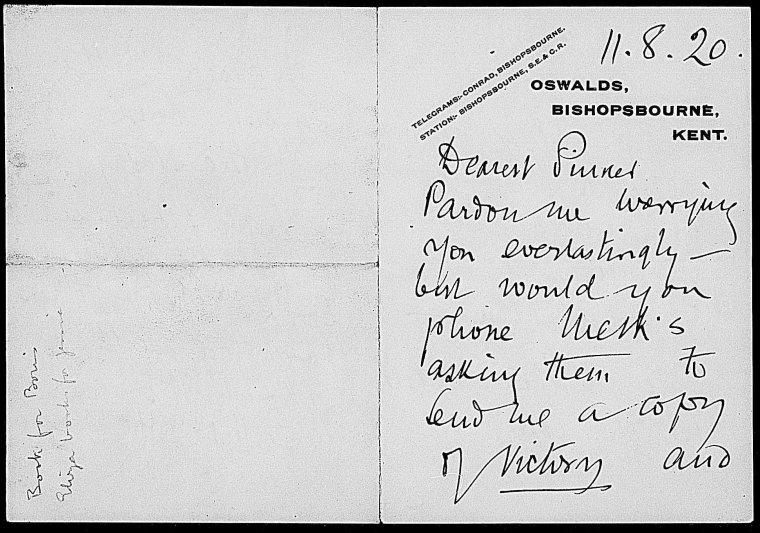 11.8.20.
TELEGRAMS:- CONRAD, BISHOPSBOURNE.
STATION:- BISHOPSBOURNE, S.E. & C.R.
OSWALDS,
BISHOPSBOURNE,
KENT.
Dearest Pinker
Pardon me worrying
you everlastingly —
but would you
phone Meth's
asking them to
send me a copy
of Victory and
Book for Boris
book for